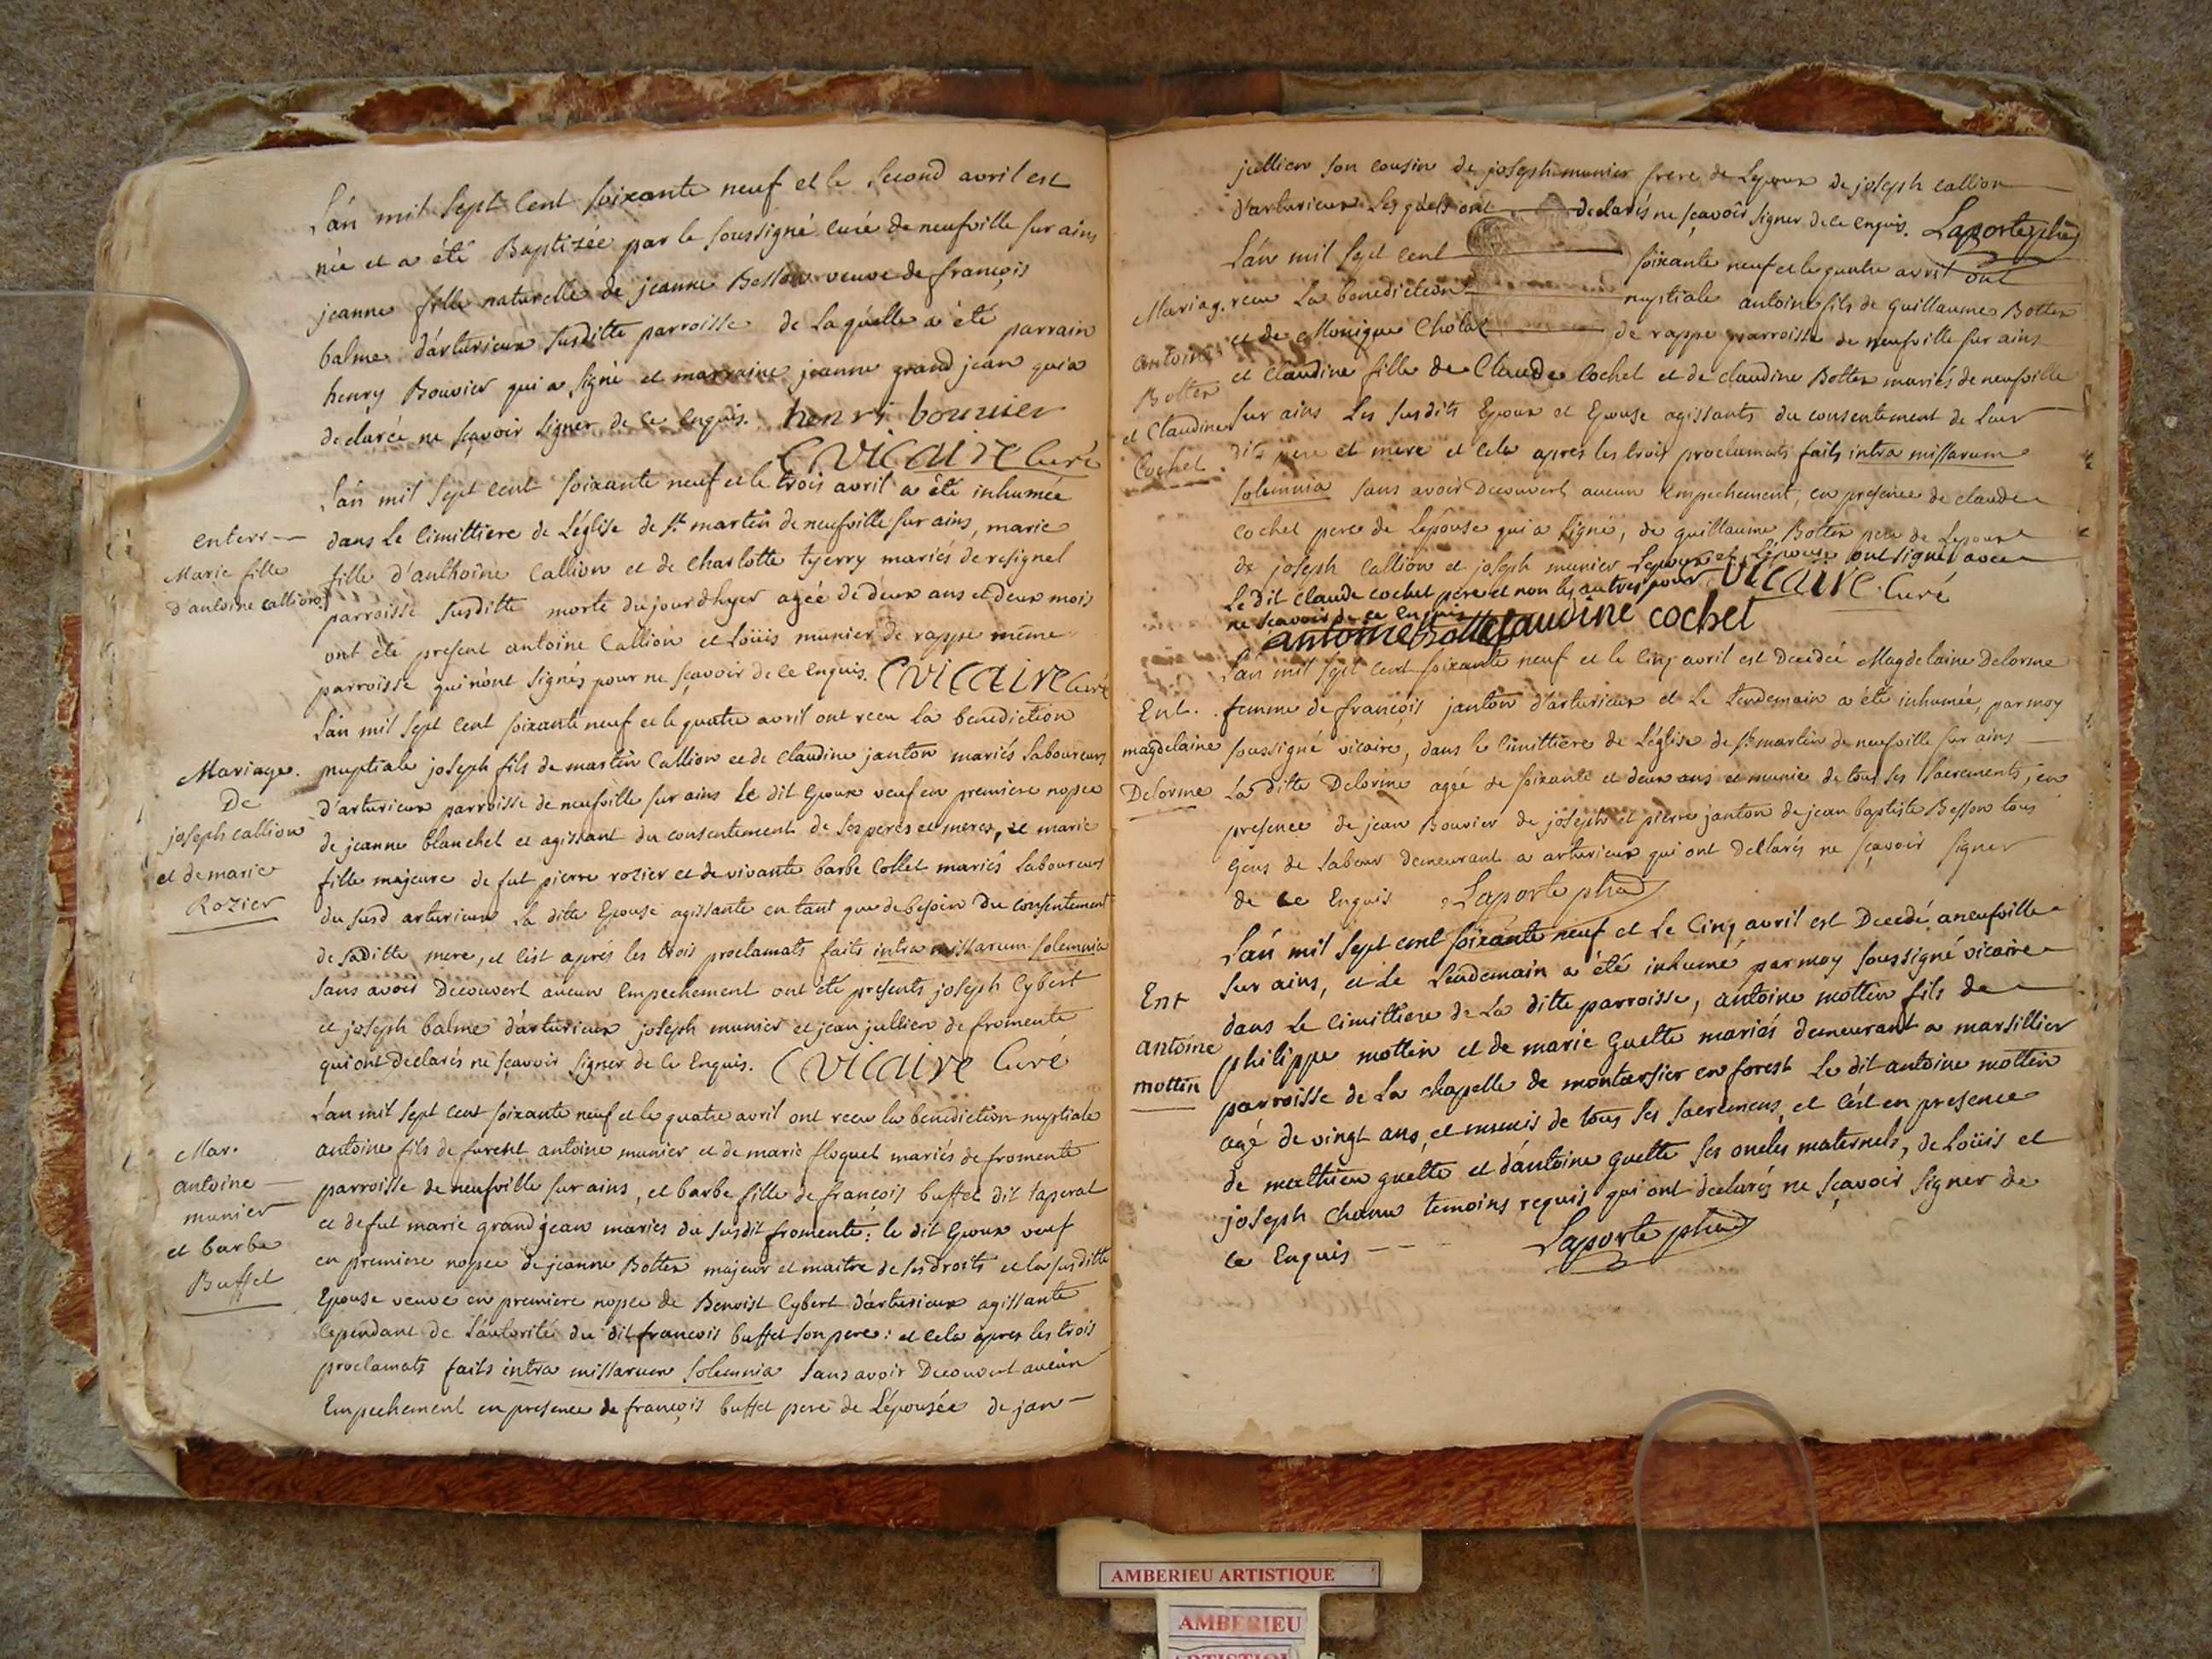 L'an mil sept cent soixante neuf et le second avril est
née et a été Baptizée par le soussigné curé de neufville sur ains
jeanne fille naturelle de jeanne Besson veuve de françois
balme d'arturieux susditte parroisse de laquelle a été parrain
henry Bouvier qui a signé et marraine jeanne grand jean qui a
declarée ne sçavoir signer de ce enquis. henri bouuier
C vicaire Curé
L'an mil sept cent soixante neuf et le trois avril a été inhumée
enterr
Marie fille
d'antoine callion
dans le cimittiere de L'église de st martin de neufville sur ains, marie
fille d'anthoine Callion et de Charlotte tyerry mariés de resignel
parroisse susditte morte du jour d'hyer agée de deux ans et deux mois
ont été present antoine Callion et Loüis munier de rappe même
parroisse qui n'ont signés pour ne sçavoir de ce enquis. C vicaire Curé
L'an mil sept cent soixante neuf et le quatre avril ont receu la benediction
Mariage.
De
joseph callion
et de marie
Rozier
nuptiale joseph fils de martin Callion et de Claudine janton mariés Laboureurs
d'arturieux parroisse de neufville sur ains le dit Epoux veuf en premiere nopce
de jeanne blanchet et agissant du consentement de ses peres et meres, et marie
fille majeure de fut pierre rozier et de vivante barbe Collet mariés Laboureurs
du susd arturieux la ditte Epouse agissante en tant que de besoin du consentement
de saditte mere, et c'est aprés les trois proclamats faits intra missarum solemnia
sans avoir Decouvert aucun Empechement ont été presents joseph Cybert
et joseph balme d'arturieux joseph munier et jean jullien de fromente
qui ont declarés ne sçavoir signer de ce enquis. C vicaire Curé
L'an mil sept cent soixante neuf et le quatre avril ont receu la benediction nuptiale
Mar.
antoine
munier
et barbe
Buffet
antoine fils de furent antoine munier et de marie floquet mariés de fromente
parroisse de neufville sur ains, et barbe fille de françois buffet dit taperat
et de fut marie grand jean mariés du susdit fromente; le dit Epoux veuf
en premiere nopce de jeanne Bottex majeur et maitre de ses droits et la susditte
Epouse veuve en premiere nopce de Benoist Cybert d'arturieux agissante
Cependant de L'autorité du dit françois buffet son pere: et cela apres les trois
proclamats faits intra missarum solemnia sans avoir Decouvert aucun
Empechement en presence de françois buffet pere de L'épousée de jan
jullien son cousin de joseph munier frere de Lepoux de joseph callion
d'arturieux Lesquels ont declarés ne sçavoir signer de ce enquis. Laporte
L'an mil sept cent soixante neuf et le quatre avril ont
Mariag.
antoine
Bottex
et Claudine
Cochet
receu La benediction nuptiale antoine fils de guillaume Bottex
et de Monique Cholat de rappe parroisse de neufville sur ains
et Claudine fille de Claude Cochet et de claudine Bottex mariés de neufville
sur ains Les susdits Epoux et Epouse agissants du consentement de Leur
dits pere et mere et cela apres les trois proclamats faits intra missarum
solemnia sans avoir Decouvert aucun empechement, en presence de claude
cochet pere de Lepouse qui a signé, de guillaume Bottex pere de Lepoux
de joseph Callion et joseph munier Lepoux et L'épouse ont signé avec
Le dit Claude cochet pere et non les autres pour vicaire Curé
ne sçavoir de ce enquis
antoine Botte claudine cochet
L'an mil sept cent soixante neuf et le cinq avril est Decedée Magdelaine Delorme
Ent.
magdelaine
Delorme
femme de françois janton d'arturieux et Le Lendemain a été inhumée, par moy
soussigné vicaire, dans le cimittiere de L'église de st martin de neufville sur ains
La ditte Delorme agée de soixante et deux ans et munie de tous ses sacrements, en
presence de jean Bouvier de joseph et pierre janton de jean baptiste Besson tous
gens de Labeur demeurant a arturieux qui ont declarés ne sçavoir signer
de ce Enquis Laporte
L'an mil sept cent soixante neuf et Le Cinq avril est Decedé a neufville
Ent
antoine
mottin
sur ains, et Le Lendemain a été inhumé par moy soussigné vicaire
dans Le cimittiere de La ditte parroisse, antoine mottin fils de
philippe mottin et de marie Guette mariés demeurant a marsillier
parroisse de La chapelle de montarsier en forest Le dit antoine mottin
agé de vingt ans, et munis de tous ses sacremens, et c'est en presence
de mathieu guette et d'antoine guette ses oncles maternels, de Loüis et
joseph Chanu temoins requis qui ont declarés ne sçavoir signer de
ce Enquis Laporte
AMBERIEU ARTISTIQUE
AMBERIEU